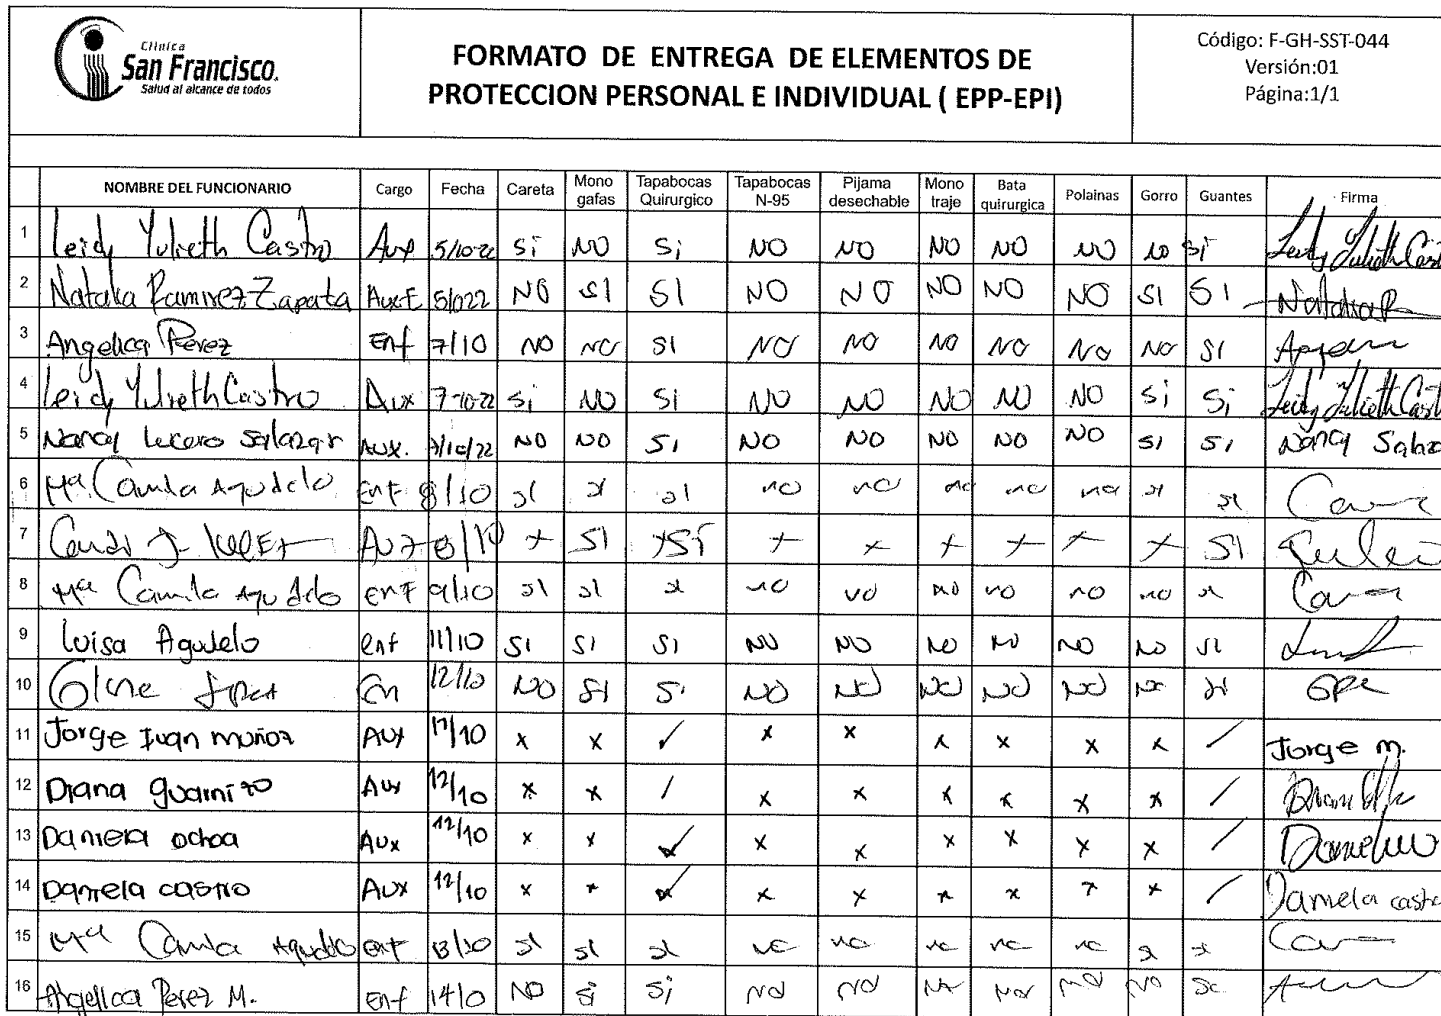 Clínica
San Francisco.
Salud al alcance de todos
FORMATO DE ENTREGA DE ELEMENTOS DE
PROTECCION PERSONAL E INDIVIDUAL ( EPP-EPI)
Código: F-GH-SST-044
Versión:01
Página:1/1
NOMBRE DEL FUNCIONARIO Cargo Fecha Careta Mono gafas Tapabocas Quirurgico Tapabocas N-95 Pijama desechable Mono traje Bata quirurgica Polainas Gorro Guantes Firma
1 Leidy Yulieth Castro Aux 5/10-22 Si NO Si NO NO NO NO NO NO Si Leidy Yulieth Cast
2 Natalia Ramirez Zapata Aux E 5/022 NO SI SI NO NO NO NO NO SI SI Natalia R
3 Angelica Perez Enf 7/10 NO NO SI NO NO NO NO NO NO SI
4 Leidy Yulieth Castro Aux 7-10-22 Si NO SI NO NO NO NO NO Si Si Leidy Yulieth Cast
5 Nancy Lucero Salazar Aux. 7/10/22 NO NO SI NO NO NO NO NO SI SI Nancy Salaz
6 Mª Camila Agudelo Enf 8/10 si si si no no no no no si si
7 Aux 8/10 x SI x SI x x x x x x SI
8 Mª Camila Agudelo Enf 9/10 si si si no no no no no no si
9 Luisa Agudelo Enf 11/10 SI SI SI NO NO NO NO NO NO SI
10 En 12/10 NO SI Si NO NO NO NO NO NO Si
11 Jorge Ivan muñoz Aux 12/10 x x ✓ x x x x x x / Jorge m.
12 Diana guarnizo Aux 12/10 x x / x x x x x x /
13 Daniela ochoa Aux 12/10 x x ✓ x x x x x x /
14 Daniela castro Aux 12/10 x x ✓ x x x x x x / Daniela castr
15 Mª Camila Agudelo Enf 13/10 si si si no no no no no si si
16 Angelica Perez M. Enf 14/0 NO Si Si NO NO NO NO NO NO